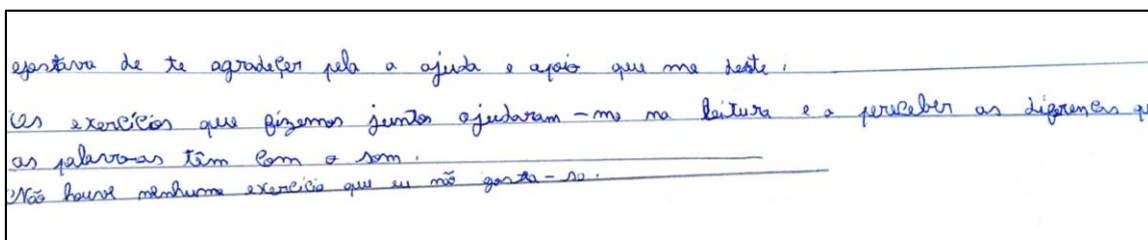 gostava de te agradeçer pela a ajuda e apoio que me deste.
Os exercícios que fizemos juntos ajudaram-me na leitura e a perceber as diferenças qu
as palavras têm com o som.
Não houve nenhuma exercicio que eu não gosta-se.